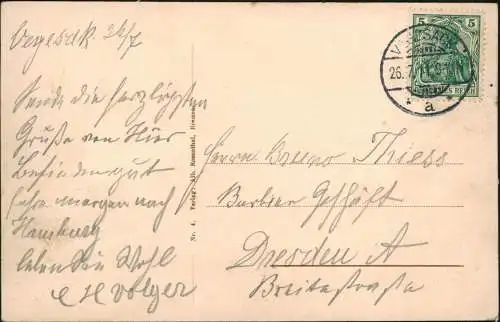 Vegesack. 26/7
Sende die herzlichsten
Grüße von Hier
Befinden gut
fahre morgen nach
Hamburg
leben Sie Wohl
Holger
Nr. 4. Verlag: Alb. Rosenthal, Bremen
5 5
VEGESACK
26.7.11.
* a
Herrn Bruno Thiess
Barbier Geschäft
Dresden A
Breitestraße